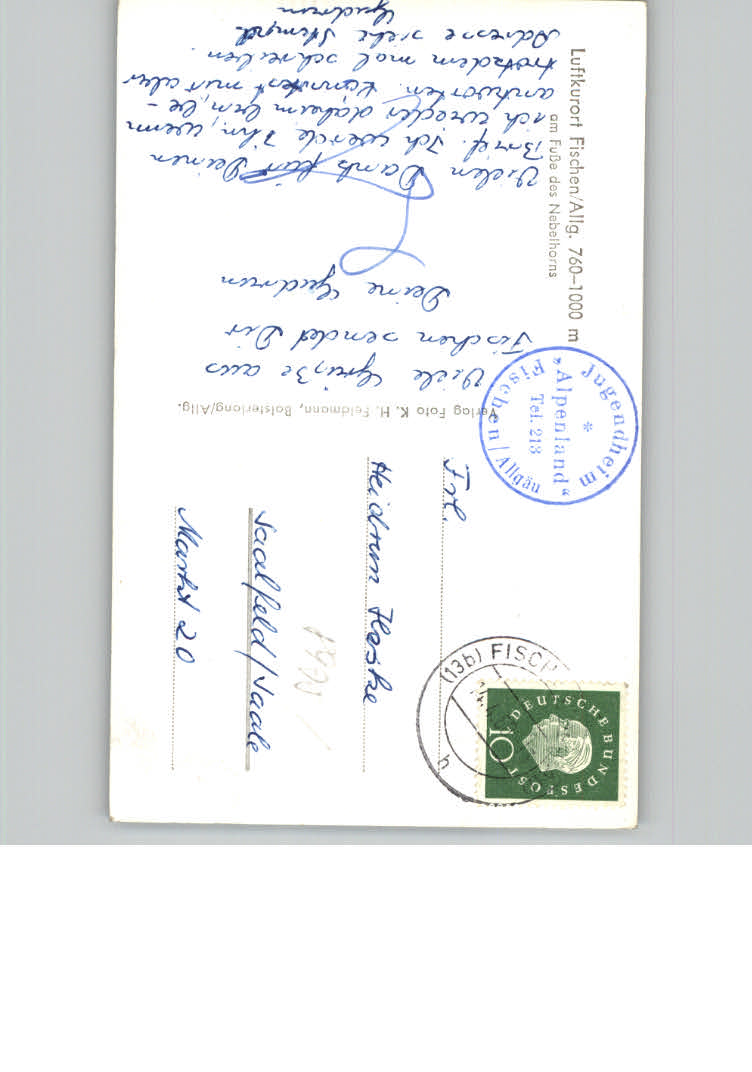 Luftkurort Fischen/Allg. 760–1000 m
am Fuße des Nebelhorns
Vielen Dank für Deinen
Brief. Ich werde ihn, wenn
ich wieder daheim bin, be-
antworten. Kannst mir aber
trotzdem mal schreiben.
Adresse siehe Stempel.
Gudrun
Viele Grüße aus
Fischen sendet Dir
Deine Gudrun
Verlag Foto K. H. Feldmann, Bolsterlang/Allg.
Jugendheim
*
„Alpenland“
Tel. 213
Fischen/Allgäu
Frl.
Heidrun
Saalfeld/Saale
Markt 20
(13b) FISCH
h
DEUTSCHE BUNDESPOST
10